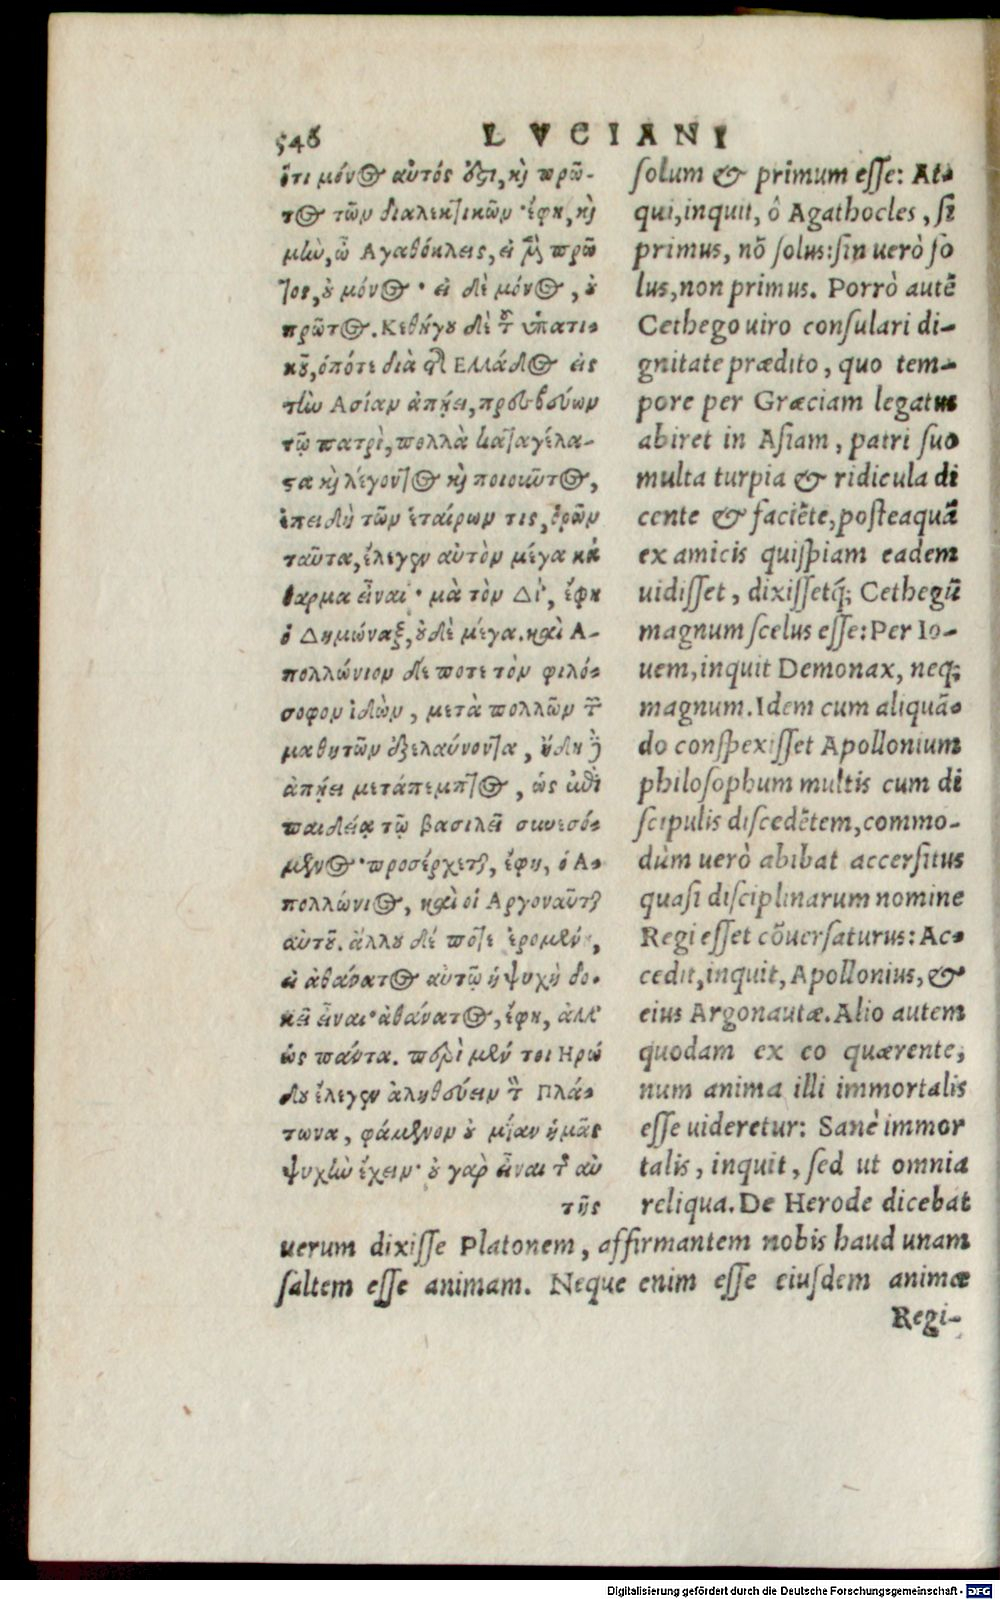 546 LVCIANI
ὅτι μόνος αὐτός ἐστι, καὶ πρῶ-
τος τῶν διαλεκτικῶν· ἔφη, καὶ
μὴν, ὦ Αγαθόκλεις, εἰ μὲν πρῶ
τος, οὐ μόνος· εἰ δὲ μόνος, οὐ
πρῶτος. Κεθήγου δὲ τοῦ ὑπατι-
κοῦ, ὁπότε διὰ τῆς Ελλάδος εἰς
τὴν Ασίαν ἀπῄει, πρεσβεύων
τῷ πατρὶ, πολλὰ καταγέλα-
στα καὶ λέγοντος καὶ ποιοῦντος,
ἐπειδὴ τῶν ἑταίρων τις, ὁρῶν
ταῦτα, ἔλεγεν αὐτὸν μέγα κά
θαρμα εἶναι· μὰ τὸν Δί', ἔφη
ὁ Δημώναξ, οὐδὲ μέγα. καὶ Α-
πολλώνιον δέ ποτε τὸν φιλό-
σοφον ἰδὼν, μετὰ πολλῶν τῶν
μαθητῶν ἐξελαύνοντα, ἤδη δὲ
ἀπῄει μετάπεμπτος, ὡς ἐπὶ
παιδείᾳ τῷ βασιλεῖ συνεσό-
μενος· προσέρχεται, ἔφη, ὁ Α-
πολλώνιος, καὶ οἱ Αργοναῦται
αὐτοῦ. ἄλλου δέ ποτε ἐρομένου,
εἰ ἀθάνατος αὐτῷ ἡ ψυχὴ δο-
κεῖ εἶναι· ἀθάνατος, ἔφη, ἀλλ'
ὡς πάντα. περὶ μέν τοι Ηρώ
δου ἔλεγεν ἀληθεύειν τὸν Πλά-
τωνα, φάμενον οὐ μίαν ἡμᾶς
ψυχὴν ἔχειν· οὐ γὰρ εἶναι τῆς αὐ
τῆς
solum & primum esse: At-
qui, inquit, ô Agathocles, si
primus, nō solus: sin uerò so
lus, non primus. Porrò autē
Cethego uiro consulari di-
gnitate prædito, quo tem-
pore per Græciam legatus
abiret in Asiam, patri suo
multa turpia & ridicula di
cente & faciēte, posteaquā
ex amicis quispiam eadem
uidisset, dixissetq́; Cethegū
magnum scelus esse: Per Io-
uem, inquit Demonax, neq;
magnum. Idem cum aliquā-
do conspexisset Apollonium
philosophum multis cum di
scipulis discedētem, commo-
dùm uerò abibat accersitus
quasi disciplinarum nomine
Regi esset cōuersaturus: Ac-
cedit, inquit, Apollonius, &
eius Argonautæ. Alio autem
quodam ex eo quærente,
num anima illi immortalis
esse uideretur: Sanè immor
talis, inquit, sed ut omnia
reliqua. De Herode dicebat
uerum dixisse Platonem, affirmantem nobis haud unam
saltem esse animam. Neque enim esse eiusdem animæ
Regi-
Digitalisierung gefördert durch die Deutsche Forschungsgemeinschaft - DFG